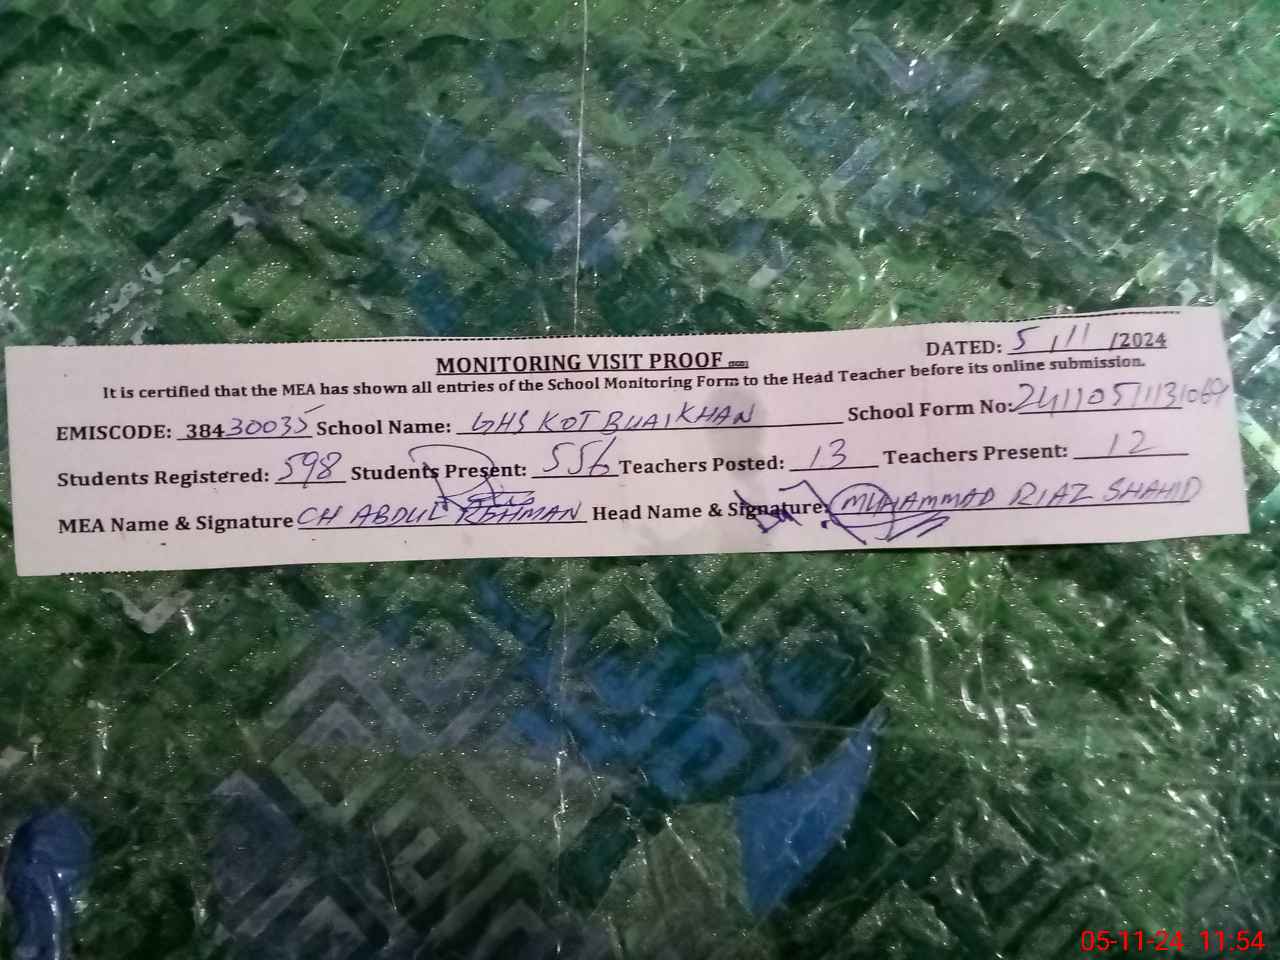 MONITORING VISIT PROOF
DATED: 5/11/2024
It is certified that the MEA has shown all entries of the School Monitoring Form to the Head Teacher before its online submission.
EMISCODE: 38430035 School Name: GHS KOT BHAI KHAN School Form No:
Students Registered: 598 Students Present: 556 Teachers Posted: 13 Teachers Present: 12
MEA Name & Signature CH ABDUL REHMAN Head Name & Signature: MUHAMMAD RIAZ SHAHID
05-11-24 11:54